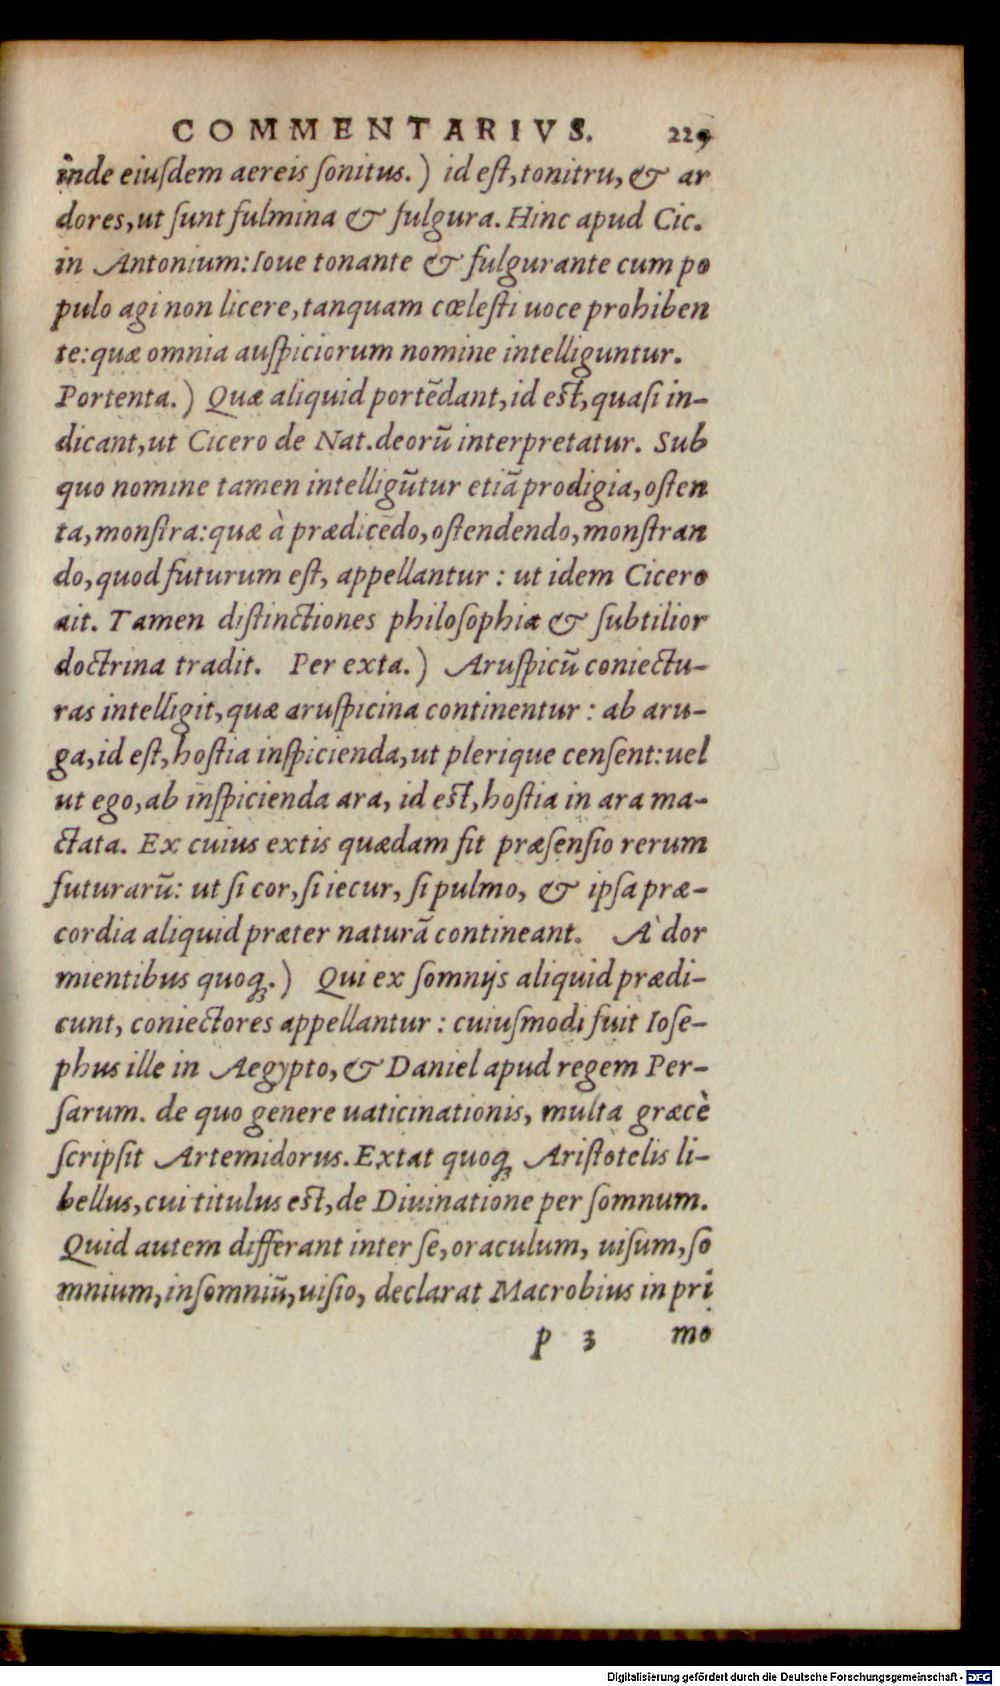 COMMENTARIVS. 229
inde eiuſdem aereis ſonitus.) id eſt, tonitru, & ar
dores, ut ſunt fulmina & fulgura. Hinc apud Cic.
in Antonium: Ioue tonante & fulgurante cum po
pulo agi non licere, tanquam cœleſti uoce prohiben
te: quæ omnia auſpiciorum nomine intelliguntur.
Portenta.) Quæ aliquid portēdant, id eſt, quaſi in-
dicant, ut Cicero de Nat. deorū interpretatur. Sub
quo nomine tamen intelligūtur etiā prodigia, oſten
ta, monſtra: quæ à prædicēdo, oſtendendo, monſtran
do, quod futurum eſt, appellantur : ut idem Cicero
ait. Tamen diſtinctiones philoſophiæ & ſubtilior
doctrina tradit. Per exta.) Aruſpicū coniectu-
ras intelligit, quæ aruſpicina continentur : ab aru-
ga, id eſt, hoſtia inſpicienda, ut plerique cenſent: uel
ut ego, ab inſpicienda ara, id eſt, hoſtia in ara ma-
ctata. Ex cuius extis quædam fit præſenſio rerum
futurarū: ut ſi cor, ſi iecur, ſi pulmo, & ipſa præ-
cordia aliquid præter naturā contineant. A` dor
mientibus quoq;.) Qui ex ſomnijs aliquid prædi-
cunt, coniectores appellantur : cuiuſmodi fuit Ioſe-
phus ille in Aegypto, & Daniel apud regem Per-
ſarum. de quo genere uaticinationis, multa græcè
ſcripſit Artemidorus. Extat quoq; Ariſtotelis li-
bellus, cui titulus eſt, de Diuinatione per ſomnum.
Quid autem differant inter ſe, oraculum, uiſum, ſo
mnium, inſomniū, uiſio, declarat Macrobius in pri
p 3 mo
Digitalisierung gefördert durch die Deutsche Forschungsgemeinschaft - DFG